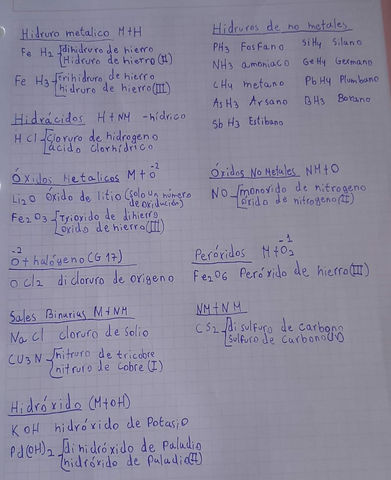 Hidruro metalico M+H
Fe H2 dihidruro de hierro
Hidruro de hierro (II)
Fe H3 trihidruro de hierro
hidruro de hierro (III)
Hidruros de no metales
PH3 Fosfano SiH4 Silano
NH3 amoniaco GeH4 Germano
CH4 metano PbH4 Plumbano
AsH3 Arsano BH3 Borano
SbH3 Estibano
Hidrácidos H+NM -hídrico
HCl cloruro de hidrogeno
ácido clorhídrico
Óxidos Metalicos M+O-2
Li2O óxido de litio (solo un número
de oxidación)
Fe2O3 Trioxido de dihierro
oxido de hierro (III)
Óxidos No Metales NM+O
NO monoxido de nitrogeno
óxido de nitrogeno (II)
-2
O+halógeno (G17)
OCl2 dicloruro de origeno
Peróxidos M+O2-1
Fe2O6 Peróxido de hierro (III)
Sales Binarias M+NM
NaCl cloruro de solio
CU3N nitruro de tricobre
nitruro de cobre (I)
NM+NM
CS2 disulfuro de carbono
sulfuro de carbono (IV)
Hidróxido (M+OH)
KOH hidróxido de Potasio
Pd(OH)2 dihidróxido de Paladio
hidróxido de Paladio (II)